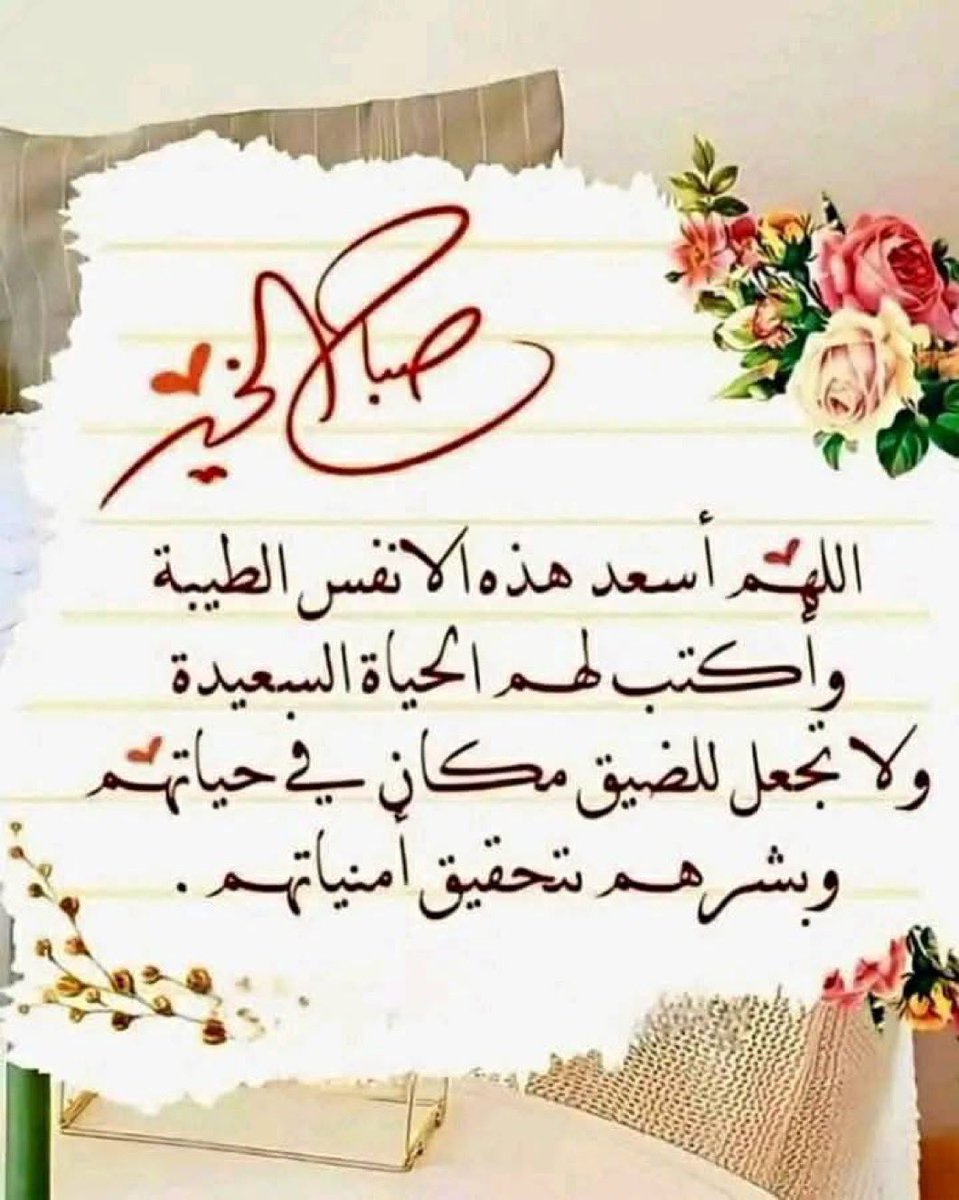 صباح الخير
اللهم أسعد هذه الانفس الطيبة
وأكتب لهم الحياة السعيدة
ولا تجعل للضيق مكان في حياتهم
وبشرهم بتحقيق أمنياتهم .